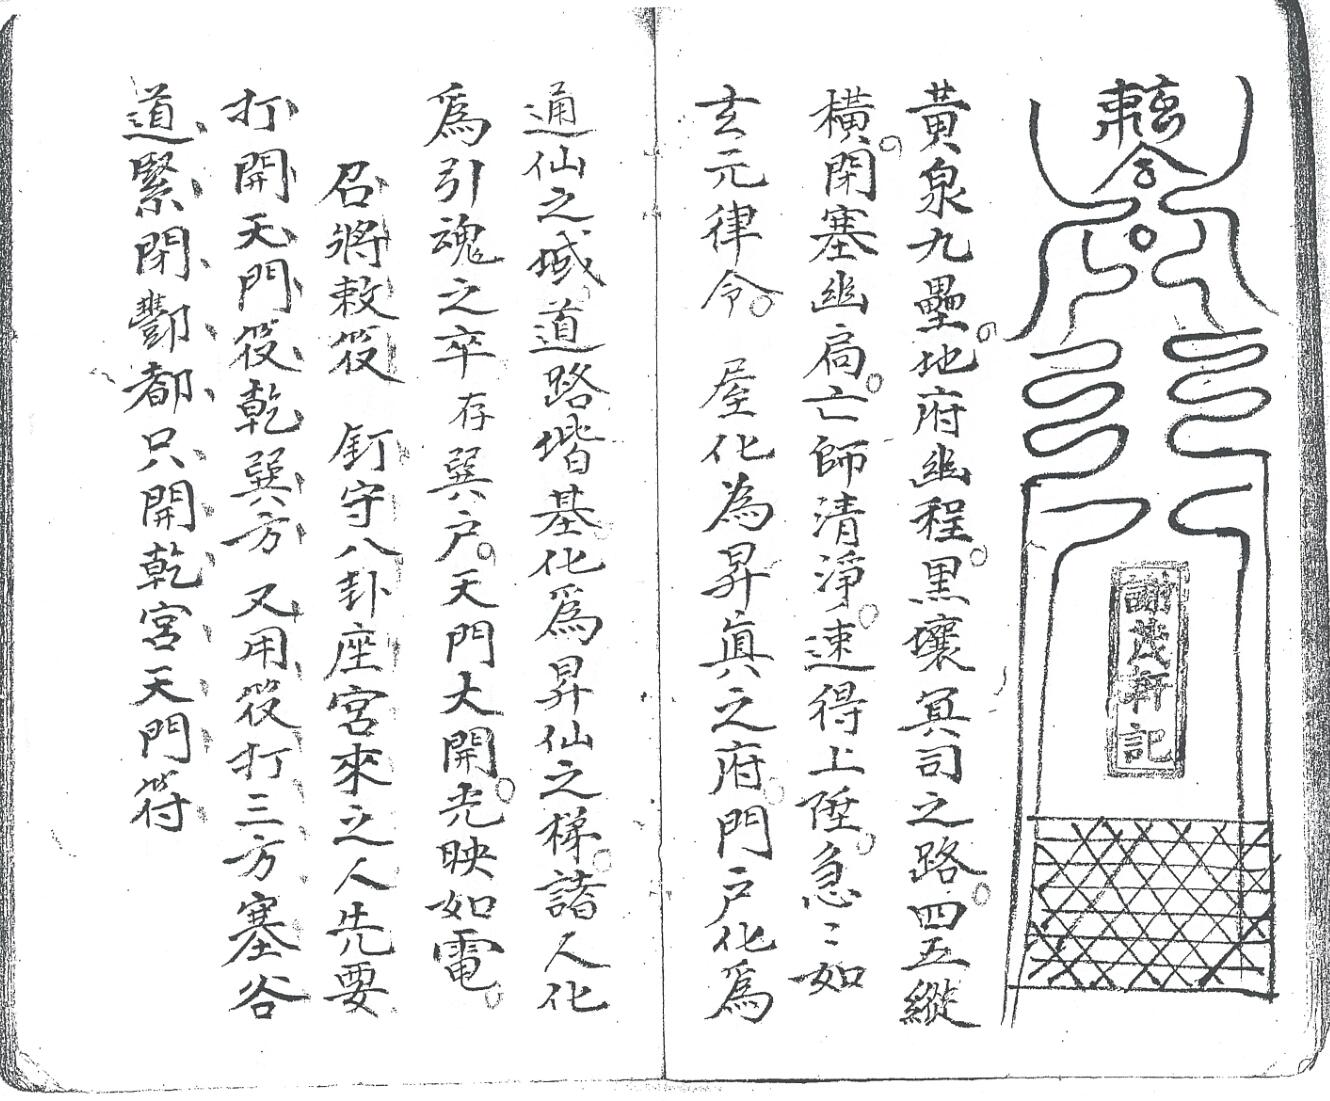 令
謝茂軒記
黃泉九壘地府幽程黑壤冥司之路四五縱
橫閉塞幽局亡師清淨速得上陞急〻如
玄元律令 屋化為昇真之府門戶化爲
通仙之域道路堦基化爲昇仙之梯諸人化
爲引魂之卒存巽户天門大開光映如電
召將敕筊 釘守八卦座宮來之人先要
打開天門筊乾巽方又用筊打三方塞谷
道緊閉酆都只開乾宮天門符